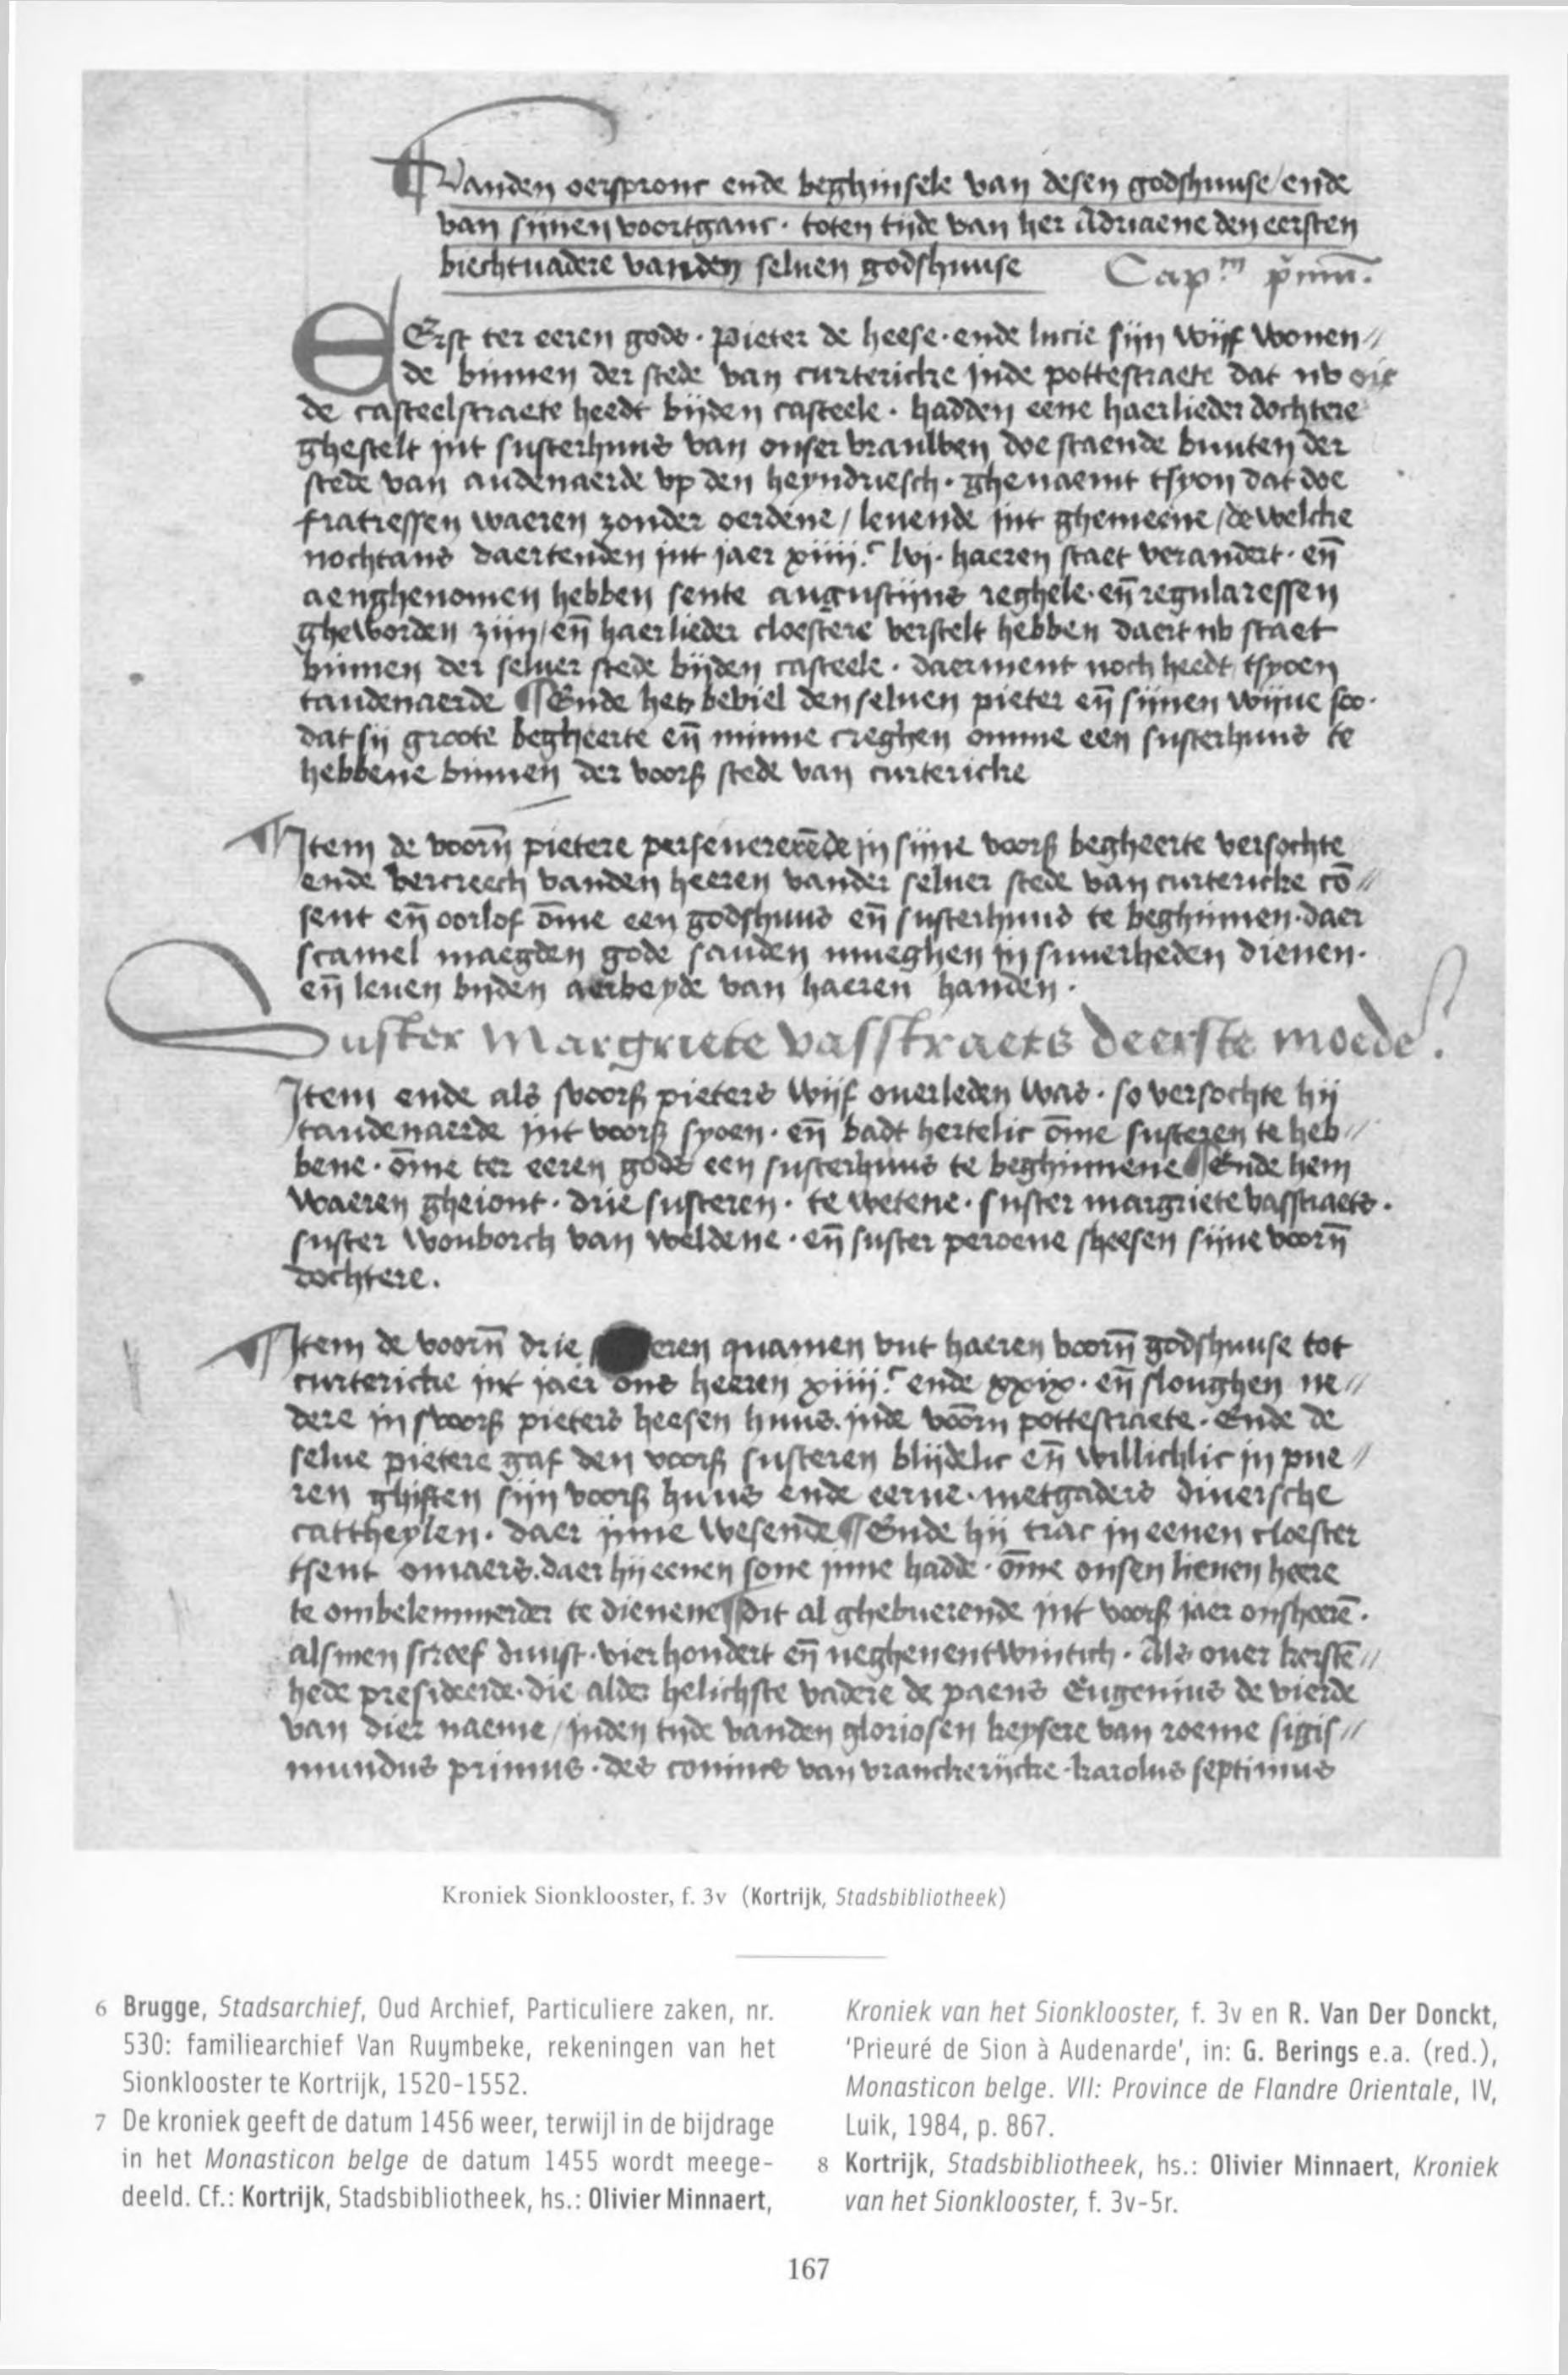 ¶ Vanden oerspronc ende beghinsele van desen godshuuse / ende
van sijnen voortganc · toten tijde van her Adriaene den eersten
biechtuadere vanden seluen godshuuse Cap.m p̄mū.
EErst ter eeren gods · pieter de heese · ende lucie sijn wijf wonen //
de binnen der stede van curtericke jnde pottestraete dat nv
de casteelstraete heedt bijden casteele · hadden eene haerlieder dochtere
ghestelt jnt susterhuus van onser vrauwen doe staende buuten der
stede van audenaerde vp den heyndriesch · ghenaemt tsyon dat doe
fratressen waeren zonder oerdene / leuende jnt ghemeene / de welcke
nochtans daertenden jnt jaer xiiij.c lvj · haeren staet verandert · en̄
aenghenomen hebben sente augustijns reghele · en̄ regularessen
gheworden zijn / en̄ haerlieder cloestere verstelt hebben daert nv staet
binnen der seluer stede bijden casteele · daerment noch heedt tsyoen
taudenaerde ¶ Ende het beviel den seluen pieter en̄ sijnen wijue soo ·
dat sij groote begheerte en̄ minne creghen omme een susterhuus te
hebbene binnen der voorß stede van curtericke
¶ Jtem de voorn̄ pietere perseuererēde in sijne voorß begheerte versochte
ende vercreech vanden heeren vander seluer stede van curtericke cō //
sent en̄ oorlof ōme een godshuus en̄ susterhuus te beghinnen · daer
scamel maegden gode sauden mueghen in suuerheden dienen ·
en̄ leuen bijden aerbeyde van haeren handen ·
Suster Margriete vasstraets deerste moedeꝛ.
Jtem ende als svoorß pieters wijf ouerleden was · so versochte hij
taudenaerde jnt voorß syoen · en̄ badt hertelic ōme susteren te heb //
bene · ōme ter eeren gods een susterhuus te beghinnene ¶ Ende hem
waeren gheiont · drie susteren · te wetene · suster margriete vasstraets ·
suster wouborch van weldene · en̄ suster peroene sheesen sijne voorn̄
dochtere.
¶ Jtem de voorn̄ drie eren quamen vut haeren voorn̄ godshuuse tot
curtericke jnt jaer ons heeren xiiij.c ende xxix · en̄ sloughen ne //
dere in svoorß pieters heesen huus · jnde voorn̄ pottestraete · Ende de
selue pietere gaf den voorß susteren blijdelic en̄ willichlic in pue //
ren ghiften sijn voorß huus ende eerue · metgaders diuersche
cattheylen · daer jnne wesende ¶ Ende hij trac in eenen cloester
tsent omaers · daer hij eenen sone jnne hadde · ōme onsen lieuen heere
te ombelemmerder te dienene ¶ dit al ghebuerende jnt voorß jaer onsheerē ·
alsmen screef duust · vierhondert en̄ neghenentwintich · Als ouer kerstē //
hede presideerde · die alder helichste vadere de paeus Eugenius de vierde
van dier naeme / jnden tijde vanden gloriosen keysere van roeme sigis //
mundus primus · des conincs van vranckerijcke · karolus septimus
Kroniek Sionklooster, f. 3v (Kortrijk, Stadsbibliotheek)
6 Brugge, Stadsarchief, Oud Archief, Particuliere zaken, nr.
530: familiearchief Van Ruymbeke, rekeningen van het
Sionklooster te Kortrijk, 1520-1552.
7 De kroniek geeft de datum 1456 weer, terwijl in de bijdrage
in het Monasticon belge de datum 1455 wordt meege-
deeld. Cf.: Kortrijk, Stadsbibliotheek, hs.: Olivier Minnaert,
Kroniek van het Sionklooster, f. 3v en R. Van Der Donckt,
'Prieuré de Sion à Audenarde', in: G. Berings e.a. (red.),
Monasticon belge. VII: Province de Flandre Orientale, IV,
Luik, 1984, p. 867.
8 Kortrijk, Stadsbibliotheek, hs.: Olivier Minnaert, Kroniek
van het Sionklooster, f. 3v-5r.
167